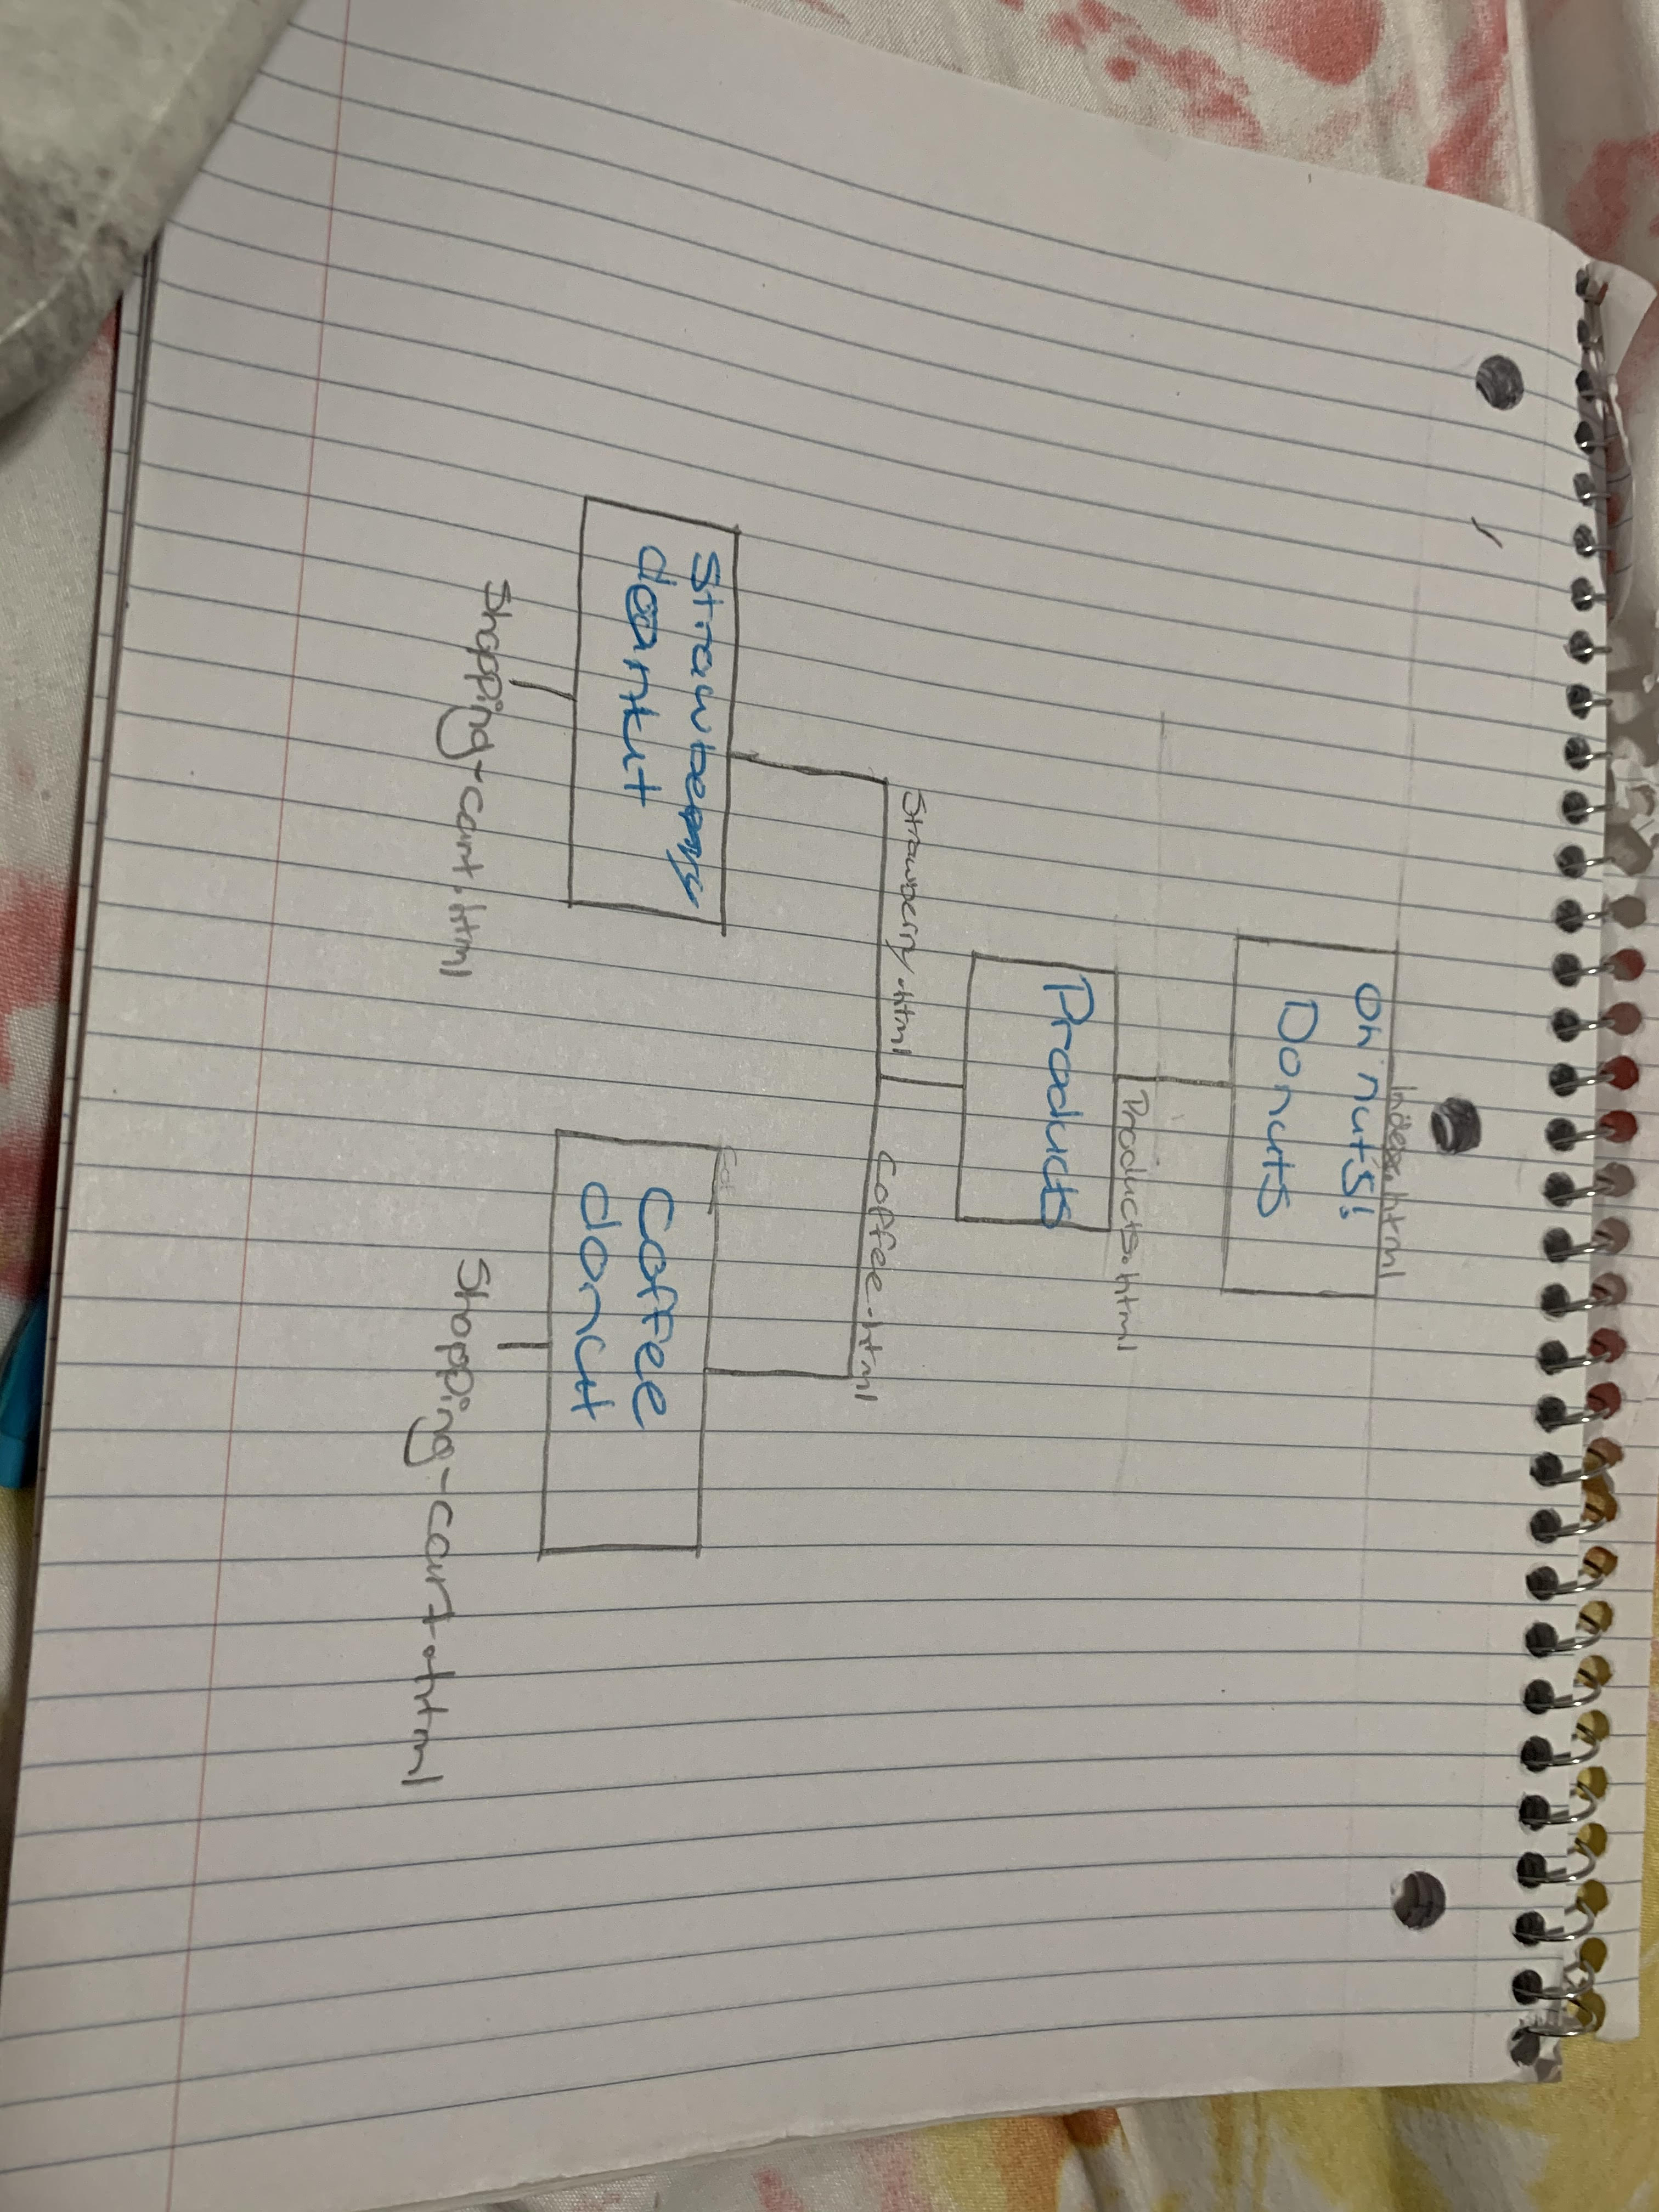 index.html
Oh nuts!
Donuts
Products.html
Products
Strawberry.html
Coffee.html
Strawberry
donut
Coffee
donut
Shopping-cart.html
Shopping-cart.html